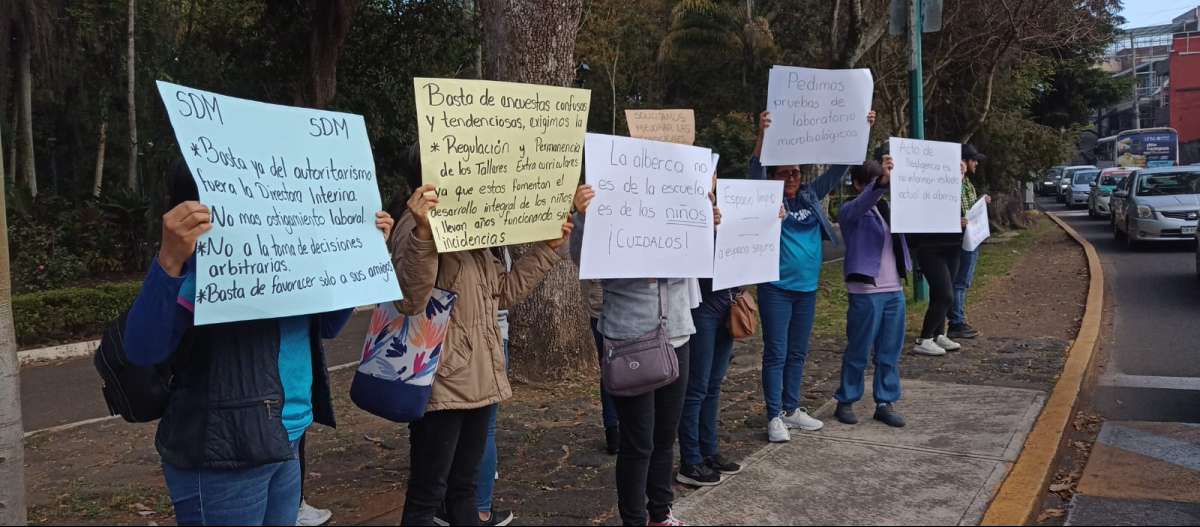 SDM
SDM
*Basta ya del autoritarismo
fuera la Directora Interina
No mas ostigamiento laboral.
*No a la toma de decisiones
arbitrarias.
*Basta de favorecer solo a sus amigas
Basta de encuestas confusas
y tendenciosas, exigimos la
* Regulación y Permanencia
de los Talleres Extra curriculares
ya que estos fomentan el
desarrollo integral de los niños y
llevan años funcionando sin
incidencias
SOLICITAMOS
La alberca no
es de la escuela
es de los niños
¡CUIDALOS!
Espacio limpio
a espacio seguro
Pedimos
pruebas de
laboratorio
microbiológicos
Acto de
Negligencia es
no informar estado
actual de alberca